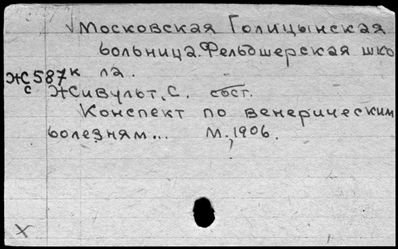 Московская Голицынская
больница. Фельдшерская шко
Ж587к ла.
с Живульт, С. сост.
Конспект по венерическим
болезням... М., 1906.
X